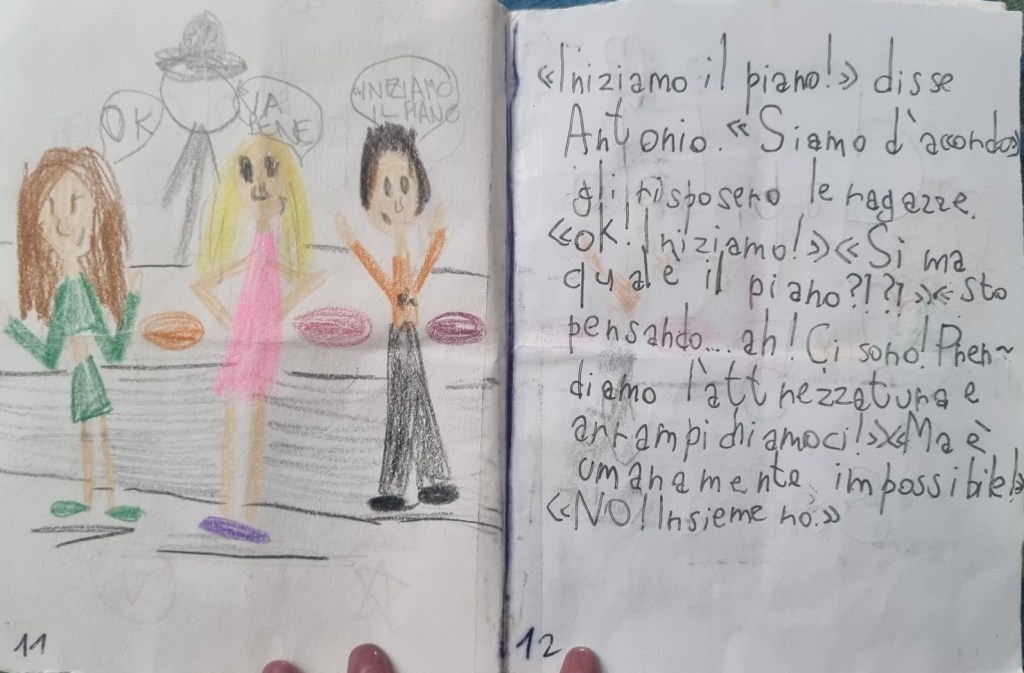 OK
VA
BENE
INIZIAMO
IL PIANO
11
«Iniziamo il piano!» disse
Antonio. «Siamo d'accordo»
gli risposero le ragazze.
«OK! Iniziamo!» «Si ma
qual è il piano?!?!» «Sto
pensando... ah! Ci sono! Pren~
diamo l'attrezzatura e
arrampichiamoci!» «Ma è
umanamente impossibile!»
«NO! Insieme no.»
12